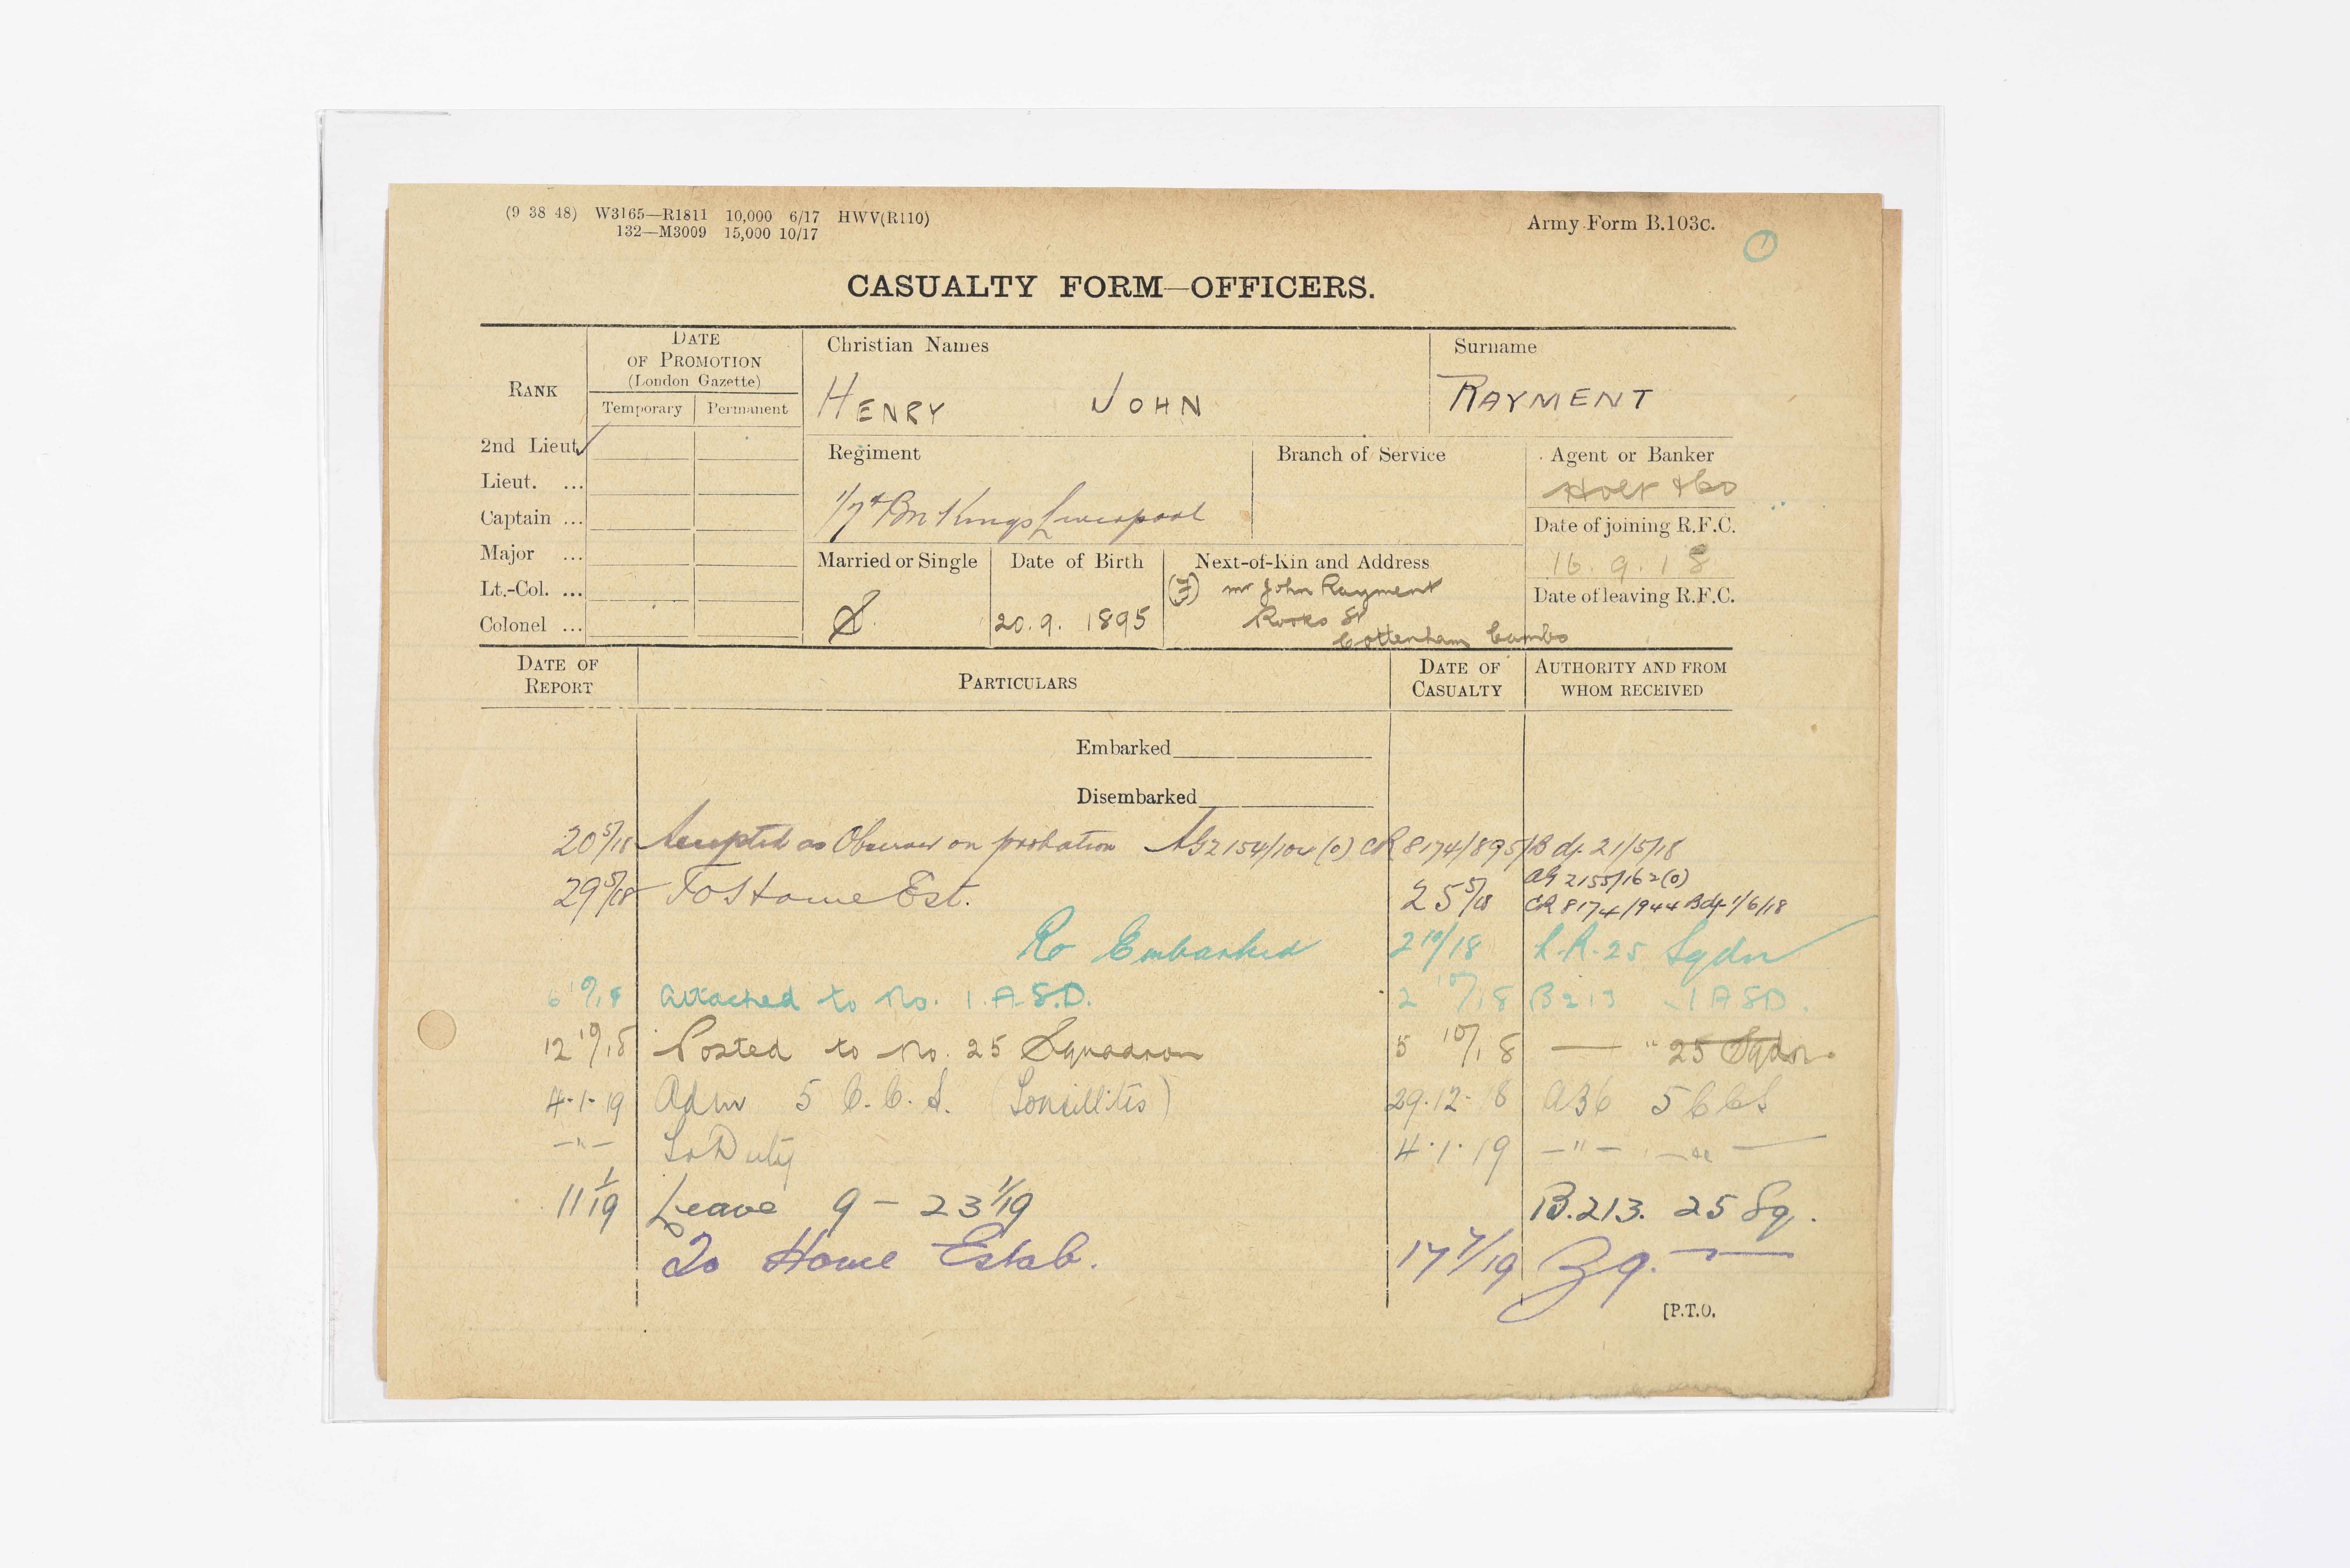 (9 38 48) W3165—R1811 10,000 6/17 HWV(R110)
132—M3009 15,000 10/17
Army Form B.103c.
1
CASUALTY FORM—OFFICERS.
RANK
DATE OF PROMOTION (London Gazette)
Temporary Permanent
Christian Names
HENRY JOHN
Surname
RAYMENT
2nd Lieut. ✓
Lieut. ...
Captain ...
Major ...
Lt.-Col. ...
Colonel ...
Regiment
1/7th Bn Kings Liverpool
Branch of Service
Agent or Banker
Holt & Co
Date of joining R.F.C.
16.9.18
Date of leaving R.F.C.
Married or Single
S.
Date of Birth
20.9.1895
Next-of-Kin and Address
(F) Mr John Rayment
Rooks St
Cottenham Cambs
DATE OF REPORT
PARTICULARS
DATE OF CASUALTY
AUTHORITY AND FROM WHOM RECEIVED
Embarked
Disembarked
20 5/18 Accepted as Observer on probation AG 2154/ (0) CR 8174/895/B d/- 21/5/18
29 5/18 To Home Est. 25 5/18 AG 2155/162(0)
CR 8174/944 B d/- 1/6/18
Re Embarked 2 10/18 25 Sqdn
6 10/18 Attached to No. 1. A.S.D. 2 10/18 B213 1 ASD.
12 10/18 Posted to No. 25 Squadron 5 10/18 — " 25 Sqdn.
4.1.19 Adm 5 C.C.S. (Tonsillitis) 29.12.18 A36 5 CCS
—"— To Duty 4.1.19 —"— —"—
11 1/19 Leave 9 – 23 1/19 B.213. 25 Sq.
To Home Estab. 17 7/19
[P.T.O.